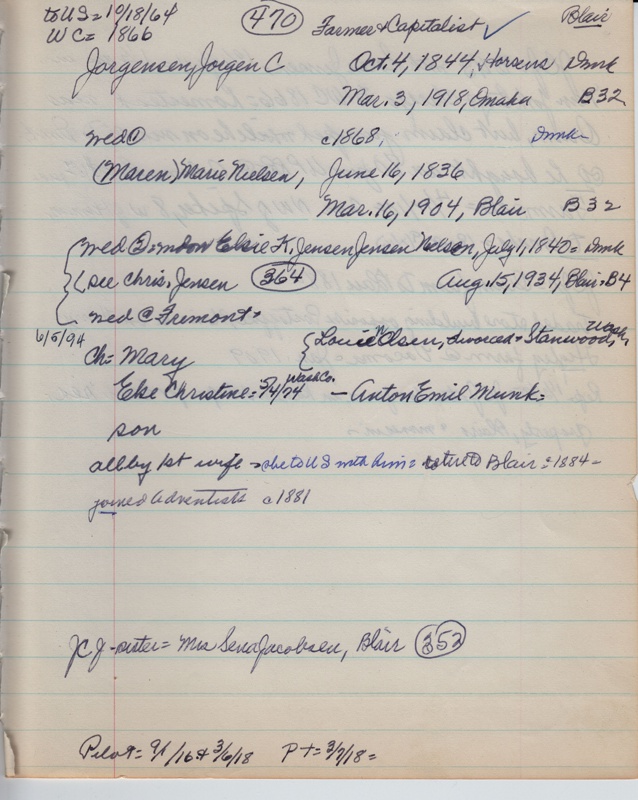 to US = 10/18/64 (470) Farmer & Capitalist ✓ Blair
W C = 1866
Jorgensen, Jorgen C Oct. 4, 1844, Horsens Dmk
Mar. 3, 1918, Omaha B32
wed ① c1868, Dmk
(Maren) Marie Nielsen, June 16, 1836
Mar. 16, 1904, Blair B32
wed ② = Elsie K. Jensen Jensen Nelson, July 1, 1840 = Dmk
see Chris. Jensen (364) Aug. 15, 1934, Blair = B4
wed @ Fremont
6/5/94
Ch = Mary { Louie Olsen, divorced + Stanwood, Wash.
Else Christine = 5/4/74 Wash Co. — Anton Emil Munk =
son
all by 1st wife - she to US with him = Blair = 1884 -
joined Adventists c1881
J C J - sister = Mrs Sena Jacobsen, Blair (352)
Pilot = 9/1/16 & 3/6/18 P T = 3/7/18 =